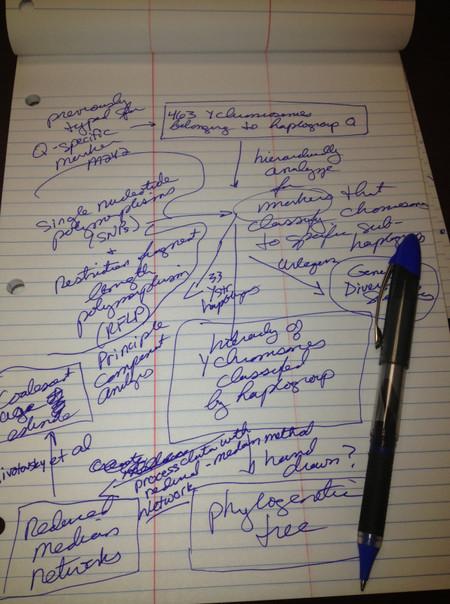 previously
typed for
Q-specific
marker
M242
463 Y chromosomes
belonging to haplogroup Q
hierarchically
analyze
for
markers that
classify chromosome
to specific sub-
haplogroups
Single nucleotide
polymorphisms
(SNPs)
+
Restriction fragment
length
polymorphism
(RFLP)
33
Ystr
haplogps
Arlequin
Gene
Diver
Principle
component
analysis
hierachy of
Y chromosomes
classified
by haplogroup
Coalescent
age
estimate
ivotovsky et al
process data with
reduced-median method
Network
hand
drawn?
Reduced
median
networks
phylogenetic
tree